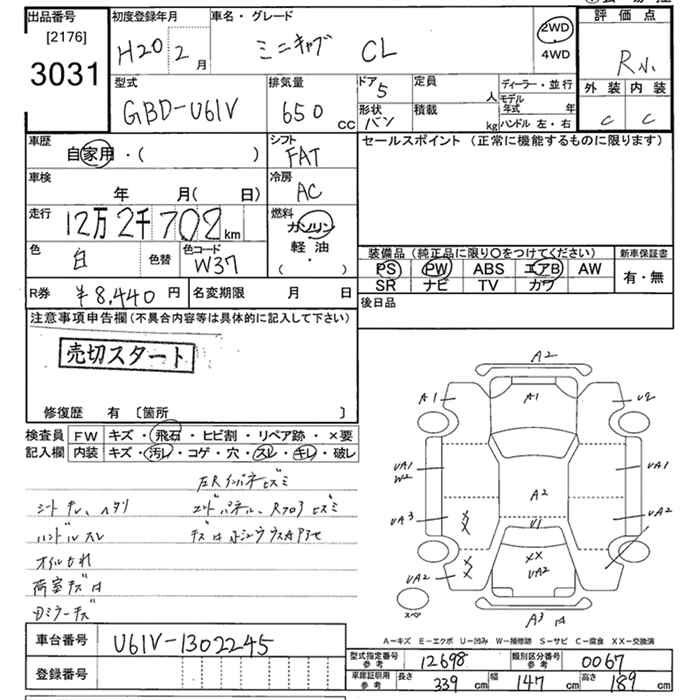 出品番号
[2176]
3031
初度登録年月
H20 2 月
車名・グレード
ミニキャブ CL
2WD
4WD
評価点
R
外装 内装
C C
型式
GBD-U61V
排気量
650 cc
ドア 5
形状 バン
定員 人
積載 kg
ディーラー・並行
モデル年式 年
ハンドル 左・右
車歴
自家用・( )
シフト
FAT
セールスポイント (正常に機能するものに限ります)
車検
年 月( 日)
冷房
AC
走行
12万2千702km
燃料
ガソリン
軽油
( ・ )
色
白
色替
色コード
W37
装備品 (純正品に限り〇をつけてください)
PS PW ABS エアB AW
SR ナビ TV カワ
新車保証書
有・無
R券 ¥8,440 円
名変期限 月 日
後日品
注意事項申告欄(不具合内容等は具体的に記入して下さい)
売切スタート
修復歴 有 〔箇所 〕
検査員
記入欄
FW キズ・飛石・ヒビ割・リペア跡・×要
内装 キズ・汚レ・コゲ・穴・スレ・キレ・破レ
ハンドルスレ
荷室キズ
A2
A1 A1 U2
UA1 W2 UA1
A2
UA3 U1 UA2
XX
UA2 UA2
A3
スペア
A-キズ E-エクボ U-凹み W-補修跡 S-サビ C-腐食 XX-交換済
車台番号
U61V-1302245
登録番号
型式指定番号 参考 12698
類別区分番号 参考 0067
車庫証明用 参考 長さ 339 cm 幅 147 cm 高さ 189 cm